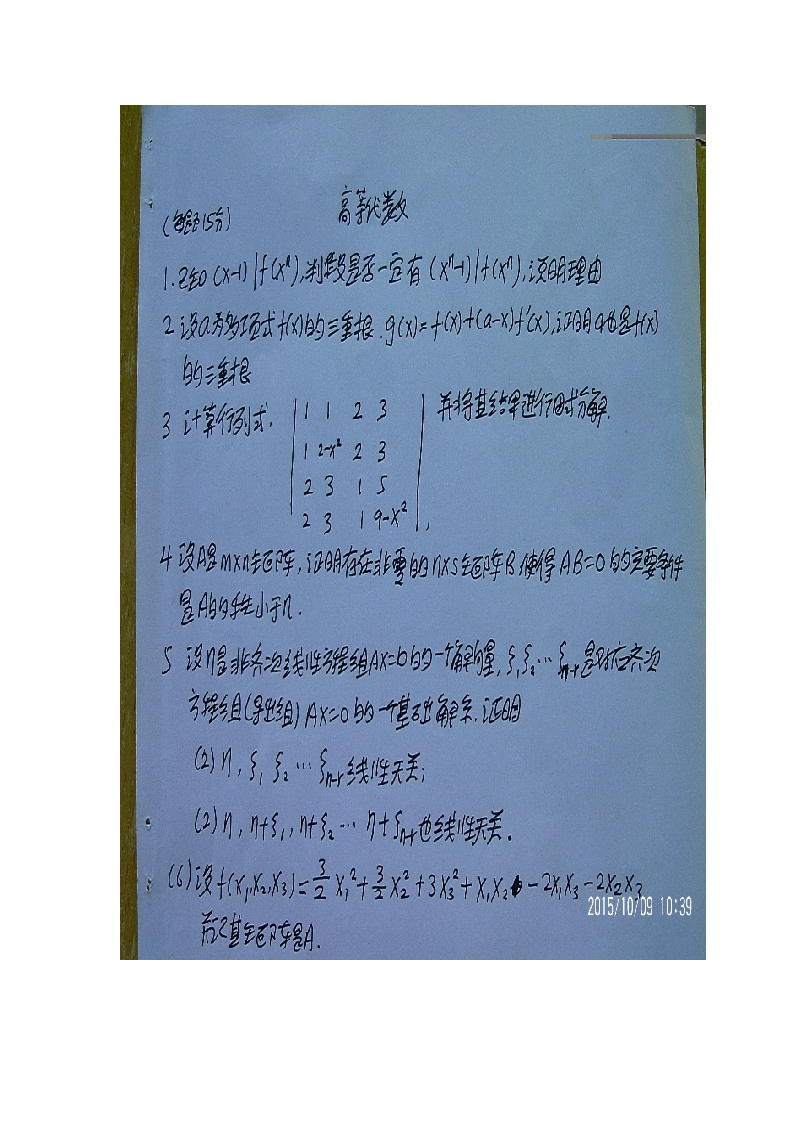 高等代数
(每题15分)
1.已知 (x-1)|f(xⁿ),判断是否一定有 (xⁿ-1)|f(xⁿ),说明理由
2 设a为多项式f(x)的三重根.g(x)=f(x)+(a-x)f'(x),证明a也是f(x)
的三重根
3 计算行列式. 并将其结果进行因式分解.
1 1 2 3
1 2-x² 2 3
2 3 1 5
2 3 1 9-x²
4 设A是m×n矩阵,证明存在非零的n×s矩阵B,使得AB=0的充要条件
是A的秩小于n.
5 设η是非齐次线性方程组AX=b的一个解向量,ξ₁ξ₂…ξₙ₋ᵣ是对应齐次
方程组(导出组)AX=0的一个基础解系.证明
(2) η,ξ₁ ξ₂ … ξₙ₋ᵣ线性无关;
(2) η,η+ξ₁,η+ξ₂ … η+ξₙ₋ᵣ也线性无关.
(6) 设f(x₁,x₂,x₃)=3/2 x₁²+3/2 x₂²+3x₃²+x₁x₂-2x₁x₃-2x₂x₃
若记其矩阵是A.
2015/10/09 10:39